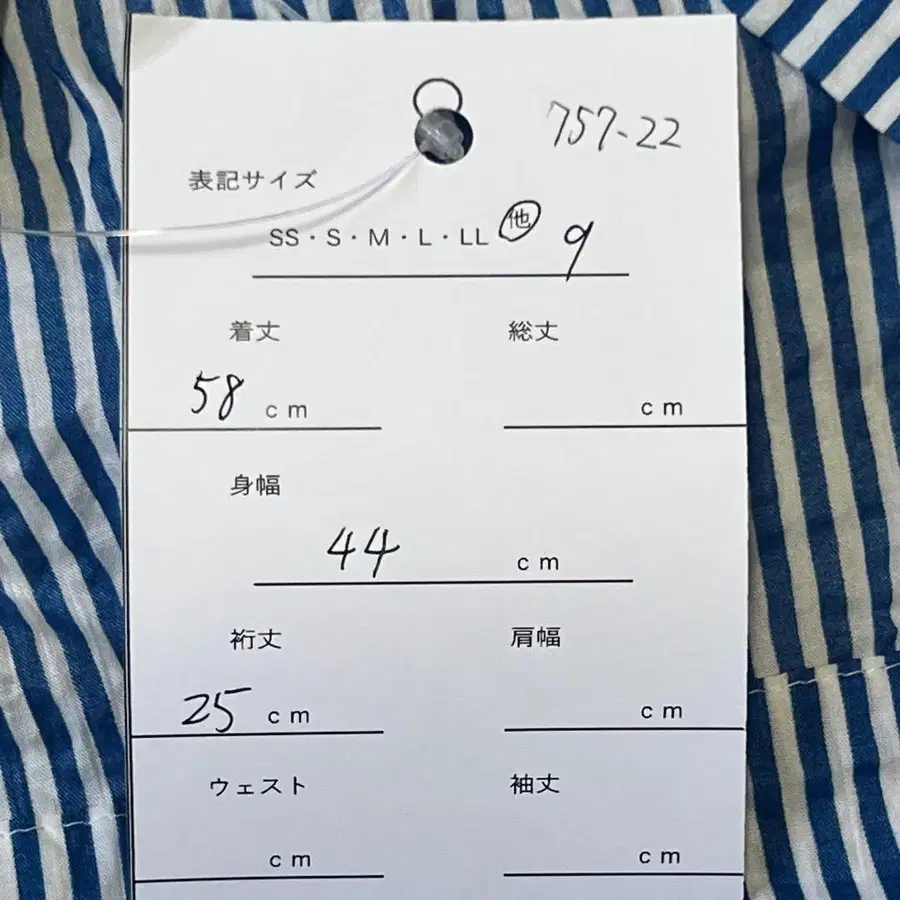 757-22
表記サイズ
SS・S・M・L・LL 他 9
着丈 総丈
58 cm cm
身幅
44 cm
裄丈 肩幅
25 cm cm
ウェスト 袖丈
cm cm